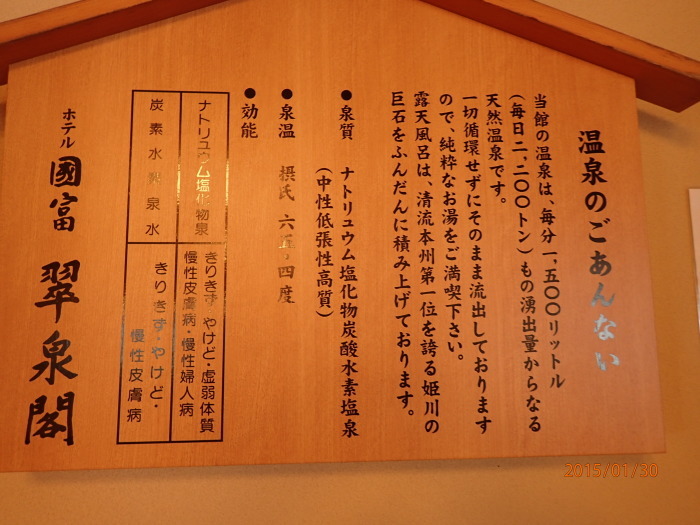 温泉のごあんない
当館の温泉は、毎分一、五〇〇リットル
(毎日二、二〇〇トン)もの湧出量からなる
天然温泉です。
一切循環せずにそのまま流出しております
ので、純粋なお湯をご満喫下さい。
露天風呂は、清流本州第一位を誇る姫川の
巨石をふんだんに積み上げております。
●泉質 ナトリュウム塩化物炭酸水素塩泉
(中性低張性高質)
●泉温 摂氏 六五・四度
●効能
ナトリュウム塩化物泉
きりきず・やけど・虚弱体質
慢性皮膚病・慢性婦人病
炭素水 泉水
きりきず・やけど・
慢性皮膚病
ホテル 國富 翠泉閣
2015/01/30